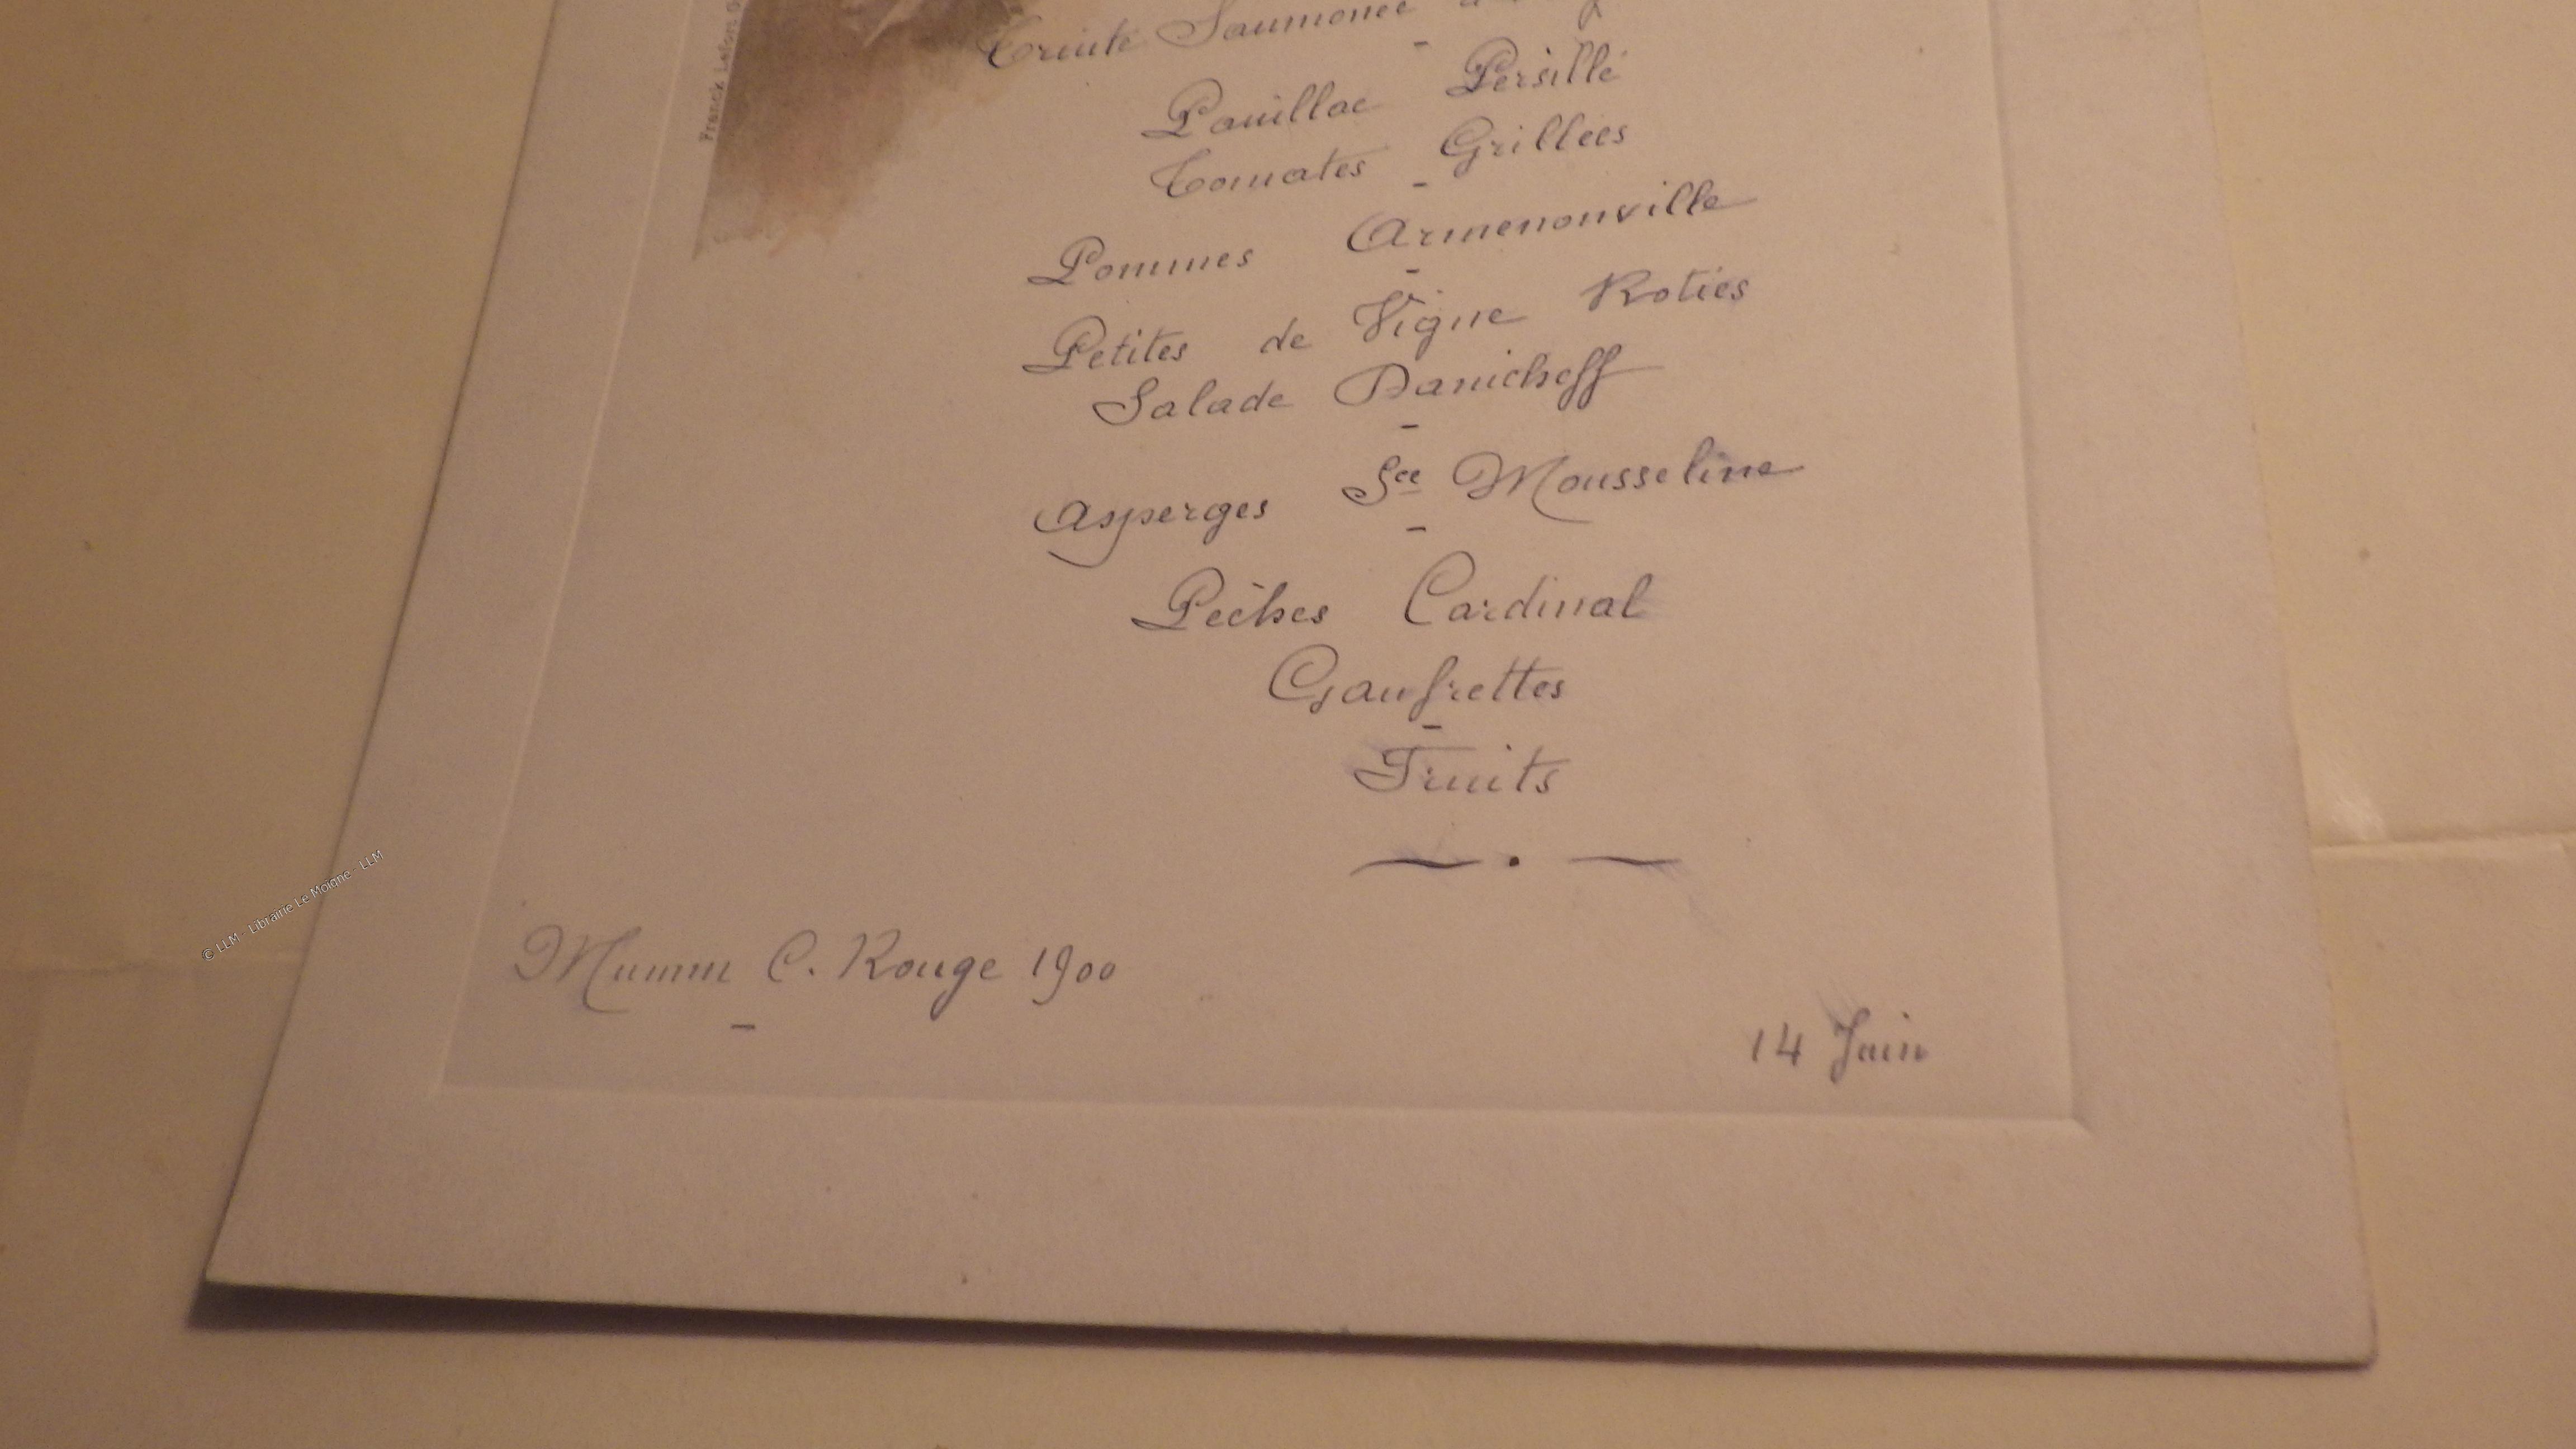 Truite Saumonée
Pauillac Persillé
Tomates Grillées
Pommes Armenonville
Petites de Vigne Roties
Salade Danicheff
Asperges Sce Mousseline
Pêches Cardinal
Gaufrettes
Fruits
Mumm C. Rouge 1900
14 Juin
Franck
© LLM - Librairie Le Moigne - LLM